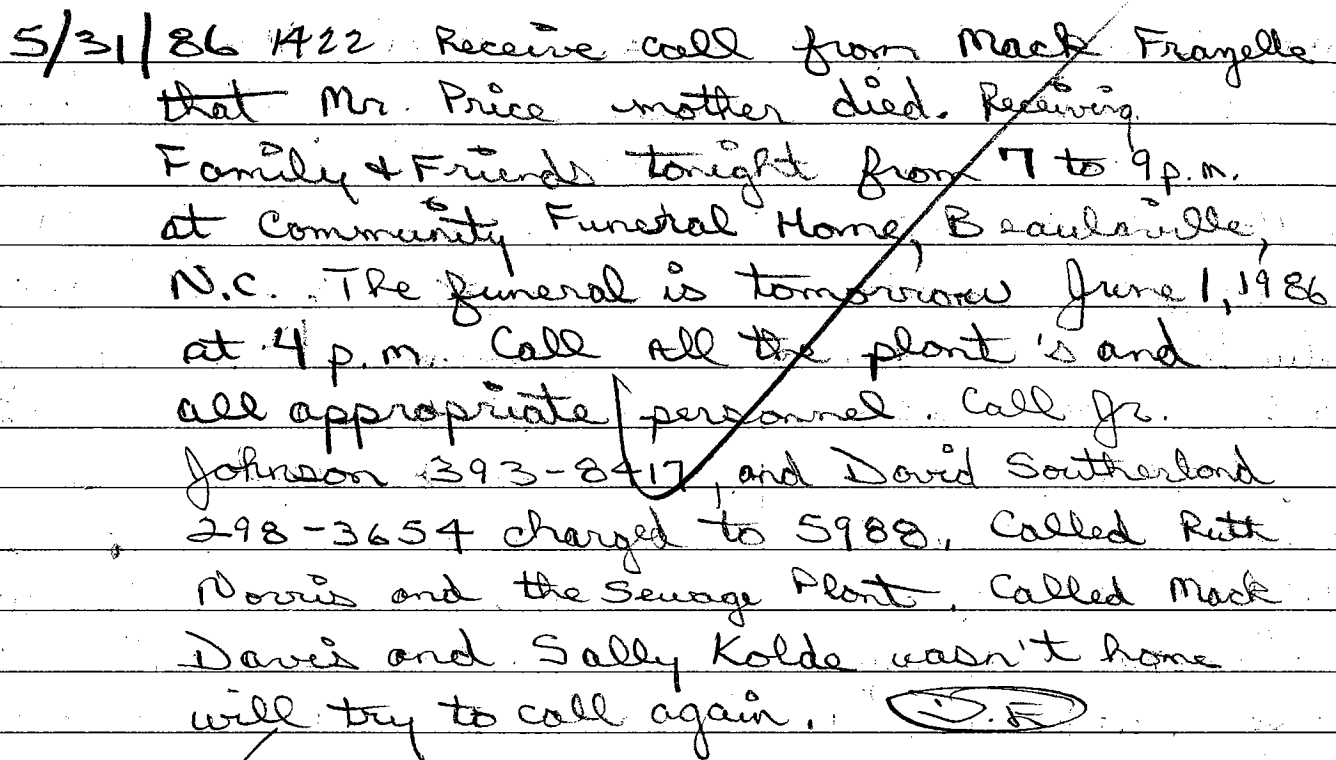 5/31/86 1422 Receive call from Mack Frazelle
that Mr. Price mother died. Receiving
Family & Friends tonight from 7 to 9 p.m.
at Community Funeral Home, Beaulaville,
N.C. The funeral is tomorrow June 1, 1986
at 4 p.m. Call All the plant's and
all appropriate personnel. Call Jr.
Johnson 393-8417, and David Southerland
298-3654 charged to 5988. Called Ruth
Norris and the Sewage Plant. Called Mack
Davis and Sally Kolde wasn't home
will try to call again. D.E